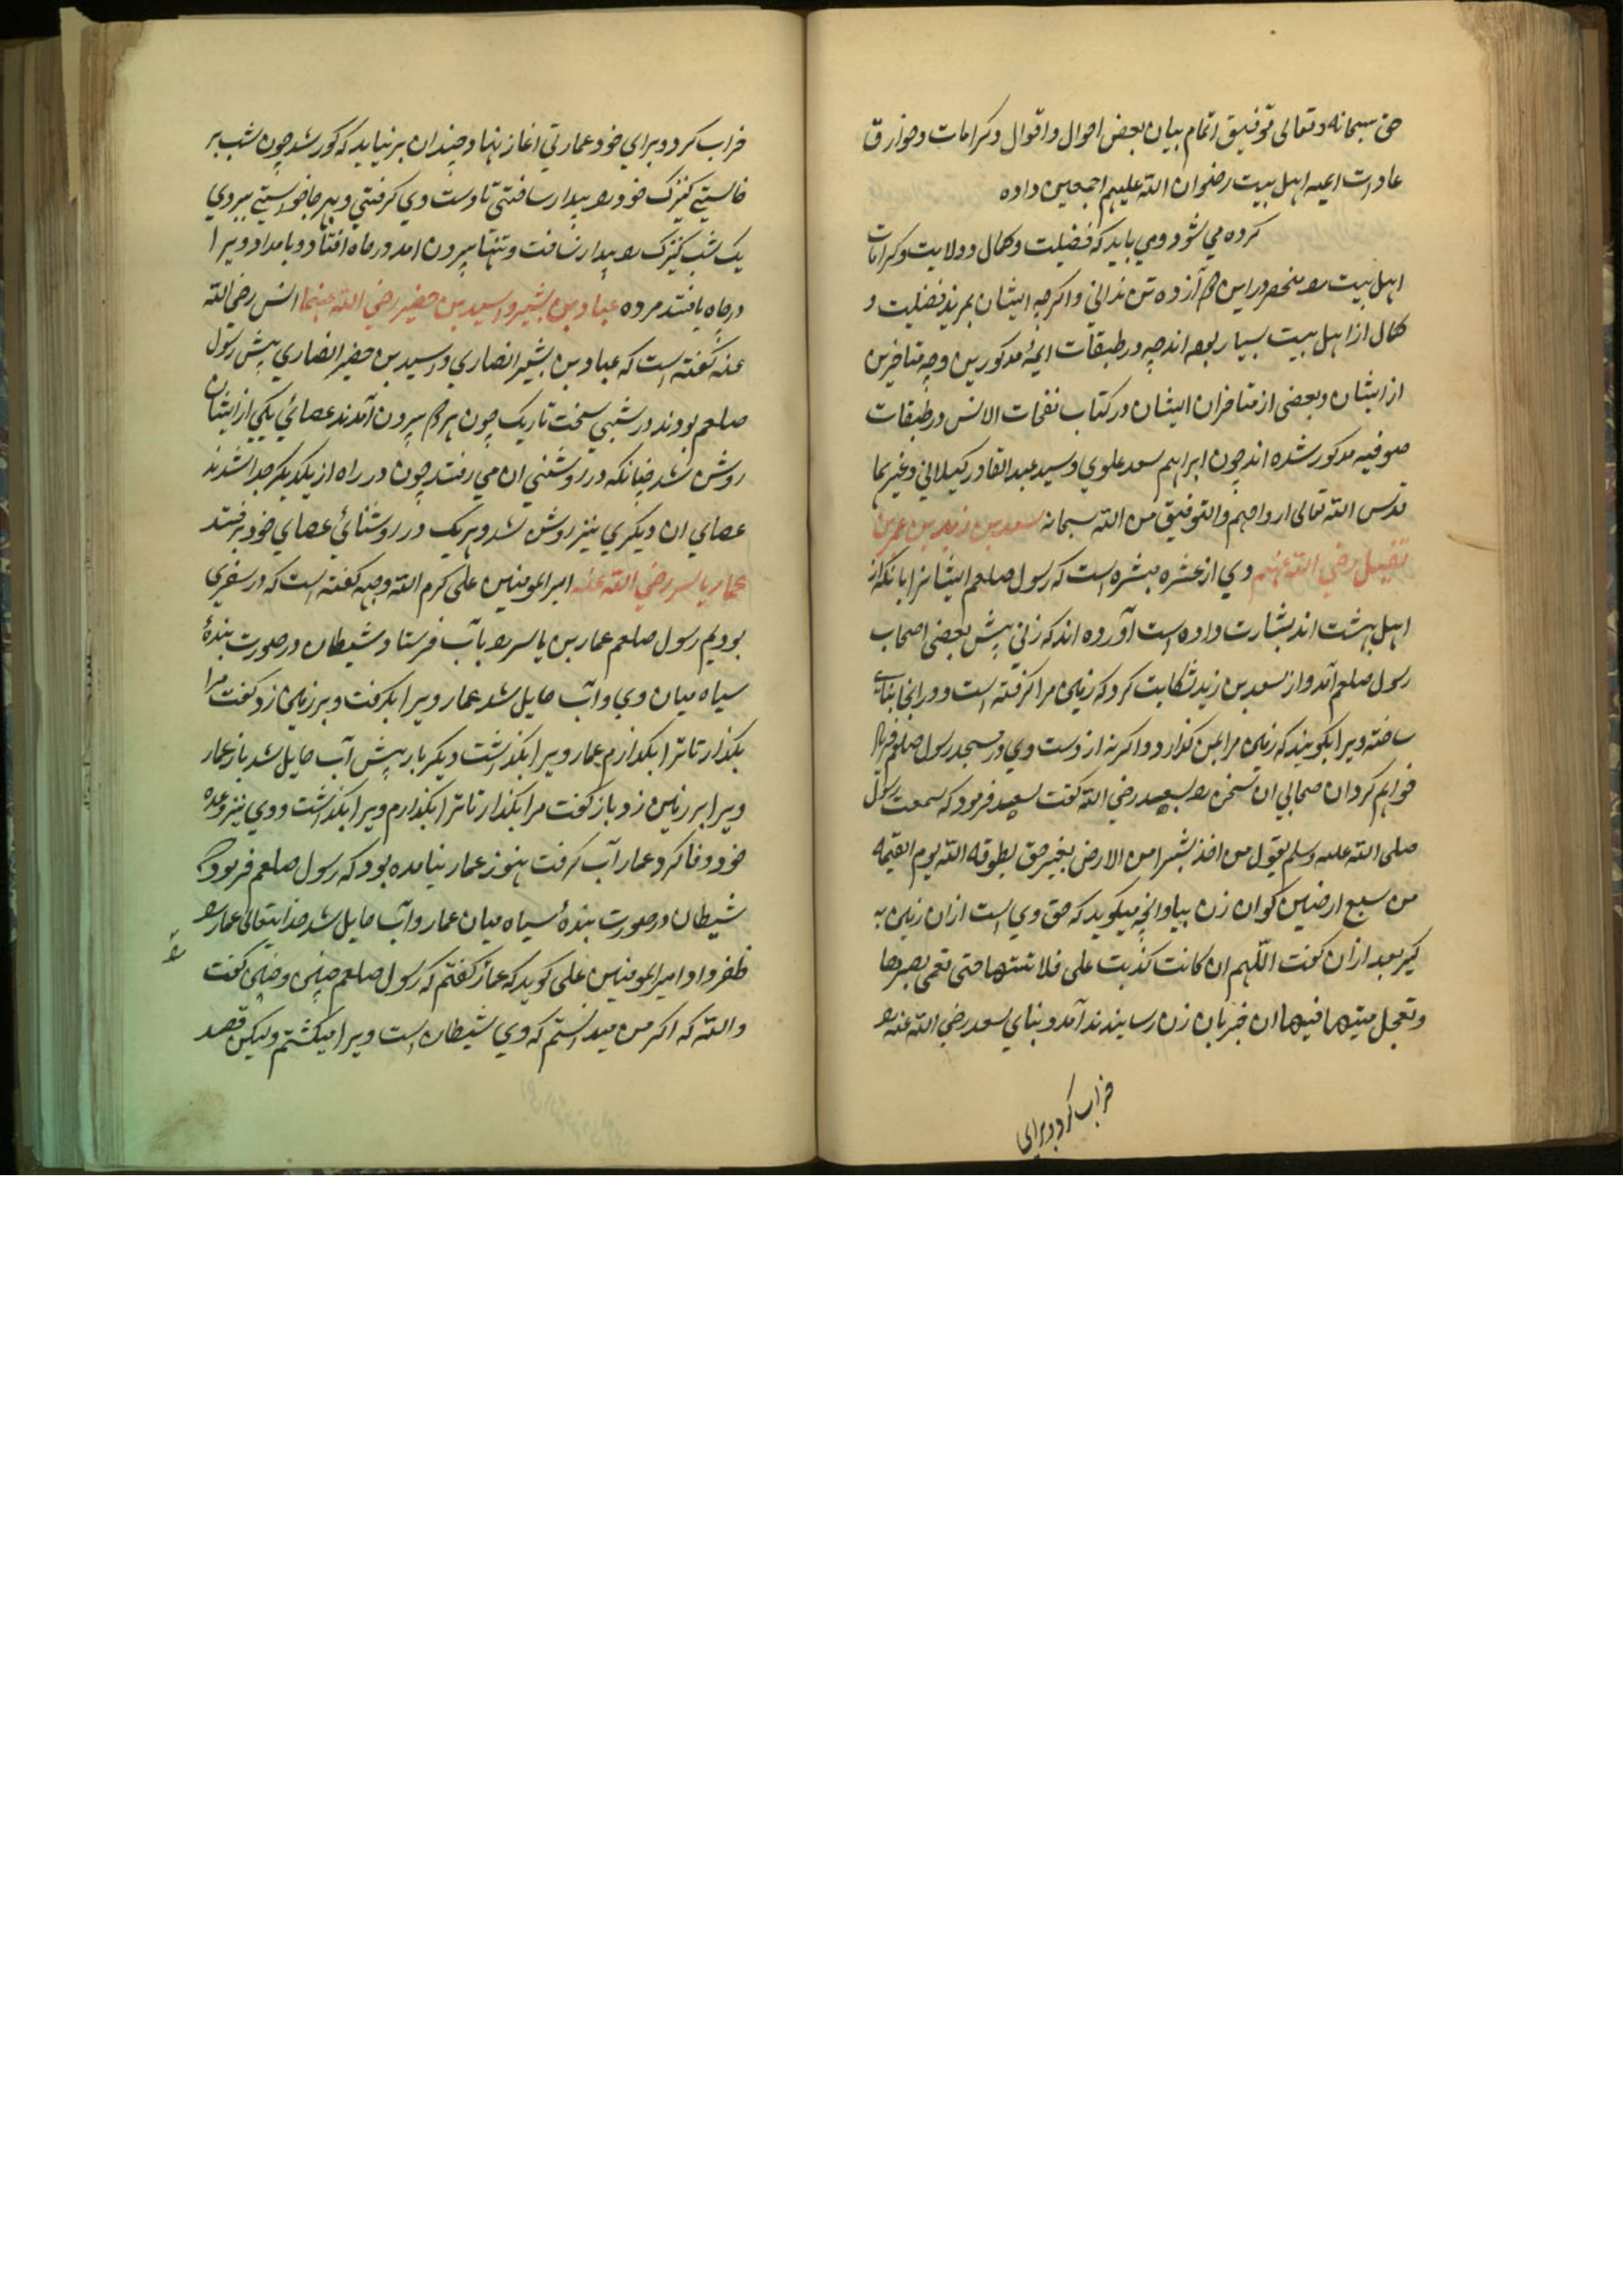 حق سبحانه وتعالی توفیق اتمام بیان بعض احوال واقوال وکرامات وخوارق
عادات ایمه اهل بیت رضوان الله علیهم اجمعین داده
کرده می شود ومی باید که فضیلت وکمال وولایت وکرامات
اهل بیت را منحصر دراین دوازده تن ندانی واکرچه ایشان بمزید فضلیت و
کمال از اهل بیت بسیار بوده اند چه در طبقات ایمهٔ مذکورین وچه متاخرین
از ایشان وبعضی از متاخران ایشان در کتاب نفحات الانس در طبقات
صوفیه مذکور شده اند چون ابراهیم سعد علوی وسید عبد القادر کیلانی وغیرهما
قدس الله تعالی ارواحهم والتوفیق من الله سبحانه سعد بن زید بن عمر بن
نفیل رضی الله عنهم وی از عشره مبشره است که رسول صلعم ایشانرا بانکه از
اهل بهشت اند بشارت داده است آورده اند که زنی پیش بعضی اصحاب
رسول صلعم آمد واز سعد بن زید شکایت کرد که زمین مرا کرفته است ودر انجا بنایی
ساخته ویرا بکویند که زمین مرا بمن کذارد واکر نه از دست وی در مسجد رسول صلعم فریاد
خواهم کرد ان صحابی ان سخن را بسعید رضی الله کفت سعید فرمود که سمعت رسول
صلی الله علیه وسلم یقول من اخذ بشبرا من الارض بغیر حق یطوقه الله یوم القیمه
من سبع ارضین کو ان زن بیا وانچه میکوید که حق وی است ازان زمین به
کیر بعد ازان کفت اللهم ان کانت کذبت علی فلا تمتها حتی تعمی بصرها
وتعجل میتها فیها ان خبر بان زن رسانیدند آمد وبنای سعد رضی الله عنه را
خراب کرد وبرای
خراب کرد وبرای خود عمارتی اغاز نهاد وچندان برنیاید که کور شد چون شب بر
خاستی کنیزک خود را بیدار ساختی تا دست وی کرفتی وبهر جا خواستی ببردی
یک شب کنیزک را بیدار نساخت وتنها بیرون امد در چاه افتاد وبامداد ویرا
در چاه یافتند مرده عباد بن بشیر واسید بن حضیر رضی الله عنهما انس رضی الله
عنه کفته است که عباد بن بشیر انصاری واسید بن حضیر انصاری پیش رسول
صلعم بودند در شبی سخت تاریک چون هر دو بیرون آمدند عصائی یکی از ایشان
روشن شد چنانکه در روشنی ان می رفتند چون در راه از یکدیکر جدا شدند
عصای ان دیکری نیز روشن شد وهر یک در روشنائی عصای خود برفتند
عمار یاسر رضی الله عنه امیر المومنین علی کرم الله وجهه کفته است که در سفری
بودیم رسول صلعم عمار بن یاسر را بآب فرستاد وشیطان در صورت بندهٔ
سیاه میان وی وآب حایل شد عمار ویرا بکرفت وبر زمین زد کفت مرا
بکذار تا ترا بکذارم عمار ویرا بکذاشت دیکر بار پیش آب حایل شد باز عمار
ویرا بر زمین زد باز کفت مرا بکذار تا ترا بکذارم ویرا بکذاشت ووی نیز وعده
خود وفا کرد عمار آب کرفت هنوز عمار نیامده بود که رسول صلعم فرمود که
شیطان در صورت بندهٔ سیاه میان عمار وآب حایل شد خدایتعالی عمار را
ظفر داد امیر المومنین علی کوید که عمار کفتم که رسول صلعم چنین وچنین کفت
والله که اکر من میدانستم که وی شیطان است ویرا میکشتم ولیکن قصد